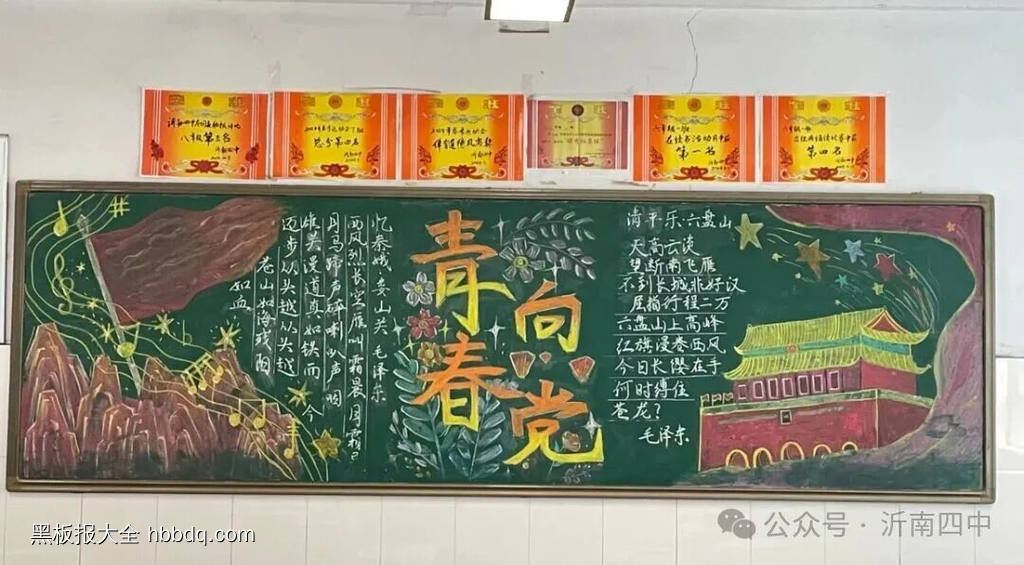 八年级第三名
总分第四名
体育道德风尚奖
六年级一班
在读书活动月中获
第一名
第四名
忆秦娥·娄山关 毛泽东
西风烈长空雁叫霜晨月霜晨
月马蹄声碎喇叭声咽
雄关漫道真如铁而今
迈步从头越从头越
苍山如海残阳
如血
青春
向党
清平乐·六盘山
天高云淡
望断南飞雁
不到长城非好汉
屈指行程二万
六盘山上高峰
红旗漫卷西风
今日长缨在手
何时缚住
苍龙?
毛泽东
黑板报大全 hbbdq.com
公众号·沂南四中